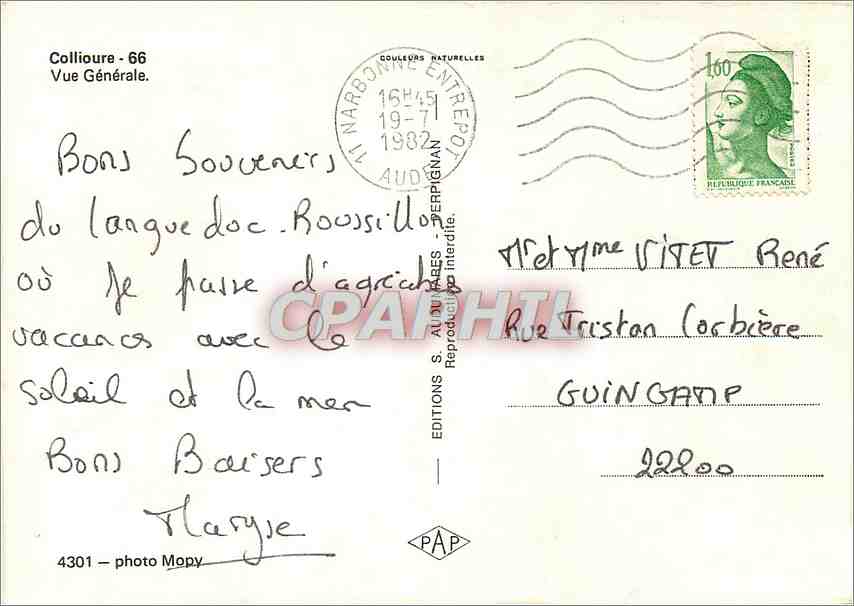 Collioure - 66
Vue Générale.
COULEURS NATURELLES
11 NARBONNE ENTREPOT
16H45
19-7
1982
AUDE
1,60
REPUBLIQUE FRANÇAISE
Bons Souvenirs
du Languedoc-Roussillon
où je passe d'agréables
vacances avec le
soleil et la mer
Bons Baisers
Maryse
4301 — photo Mopy
EDITIONS S. AUDUMARES - PERPIGNAN
Reproduction interdite.
CPAPHIL
PAP
Mr et Mme VITET René
Rue Tristan Corbière
GUINGAMP
22200